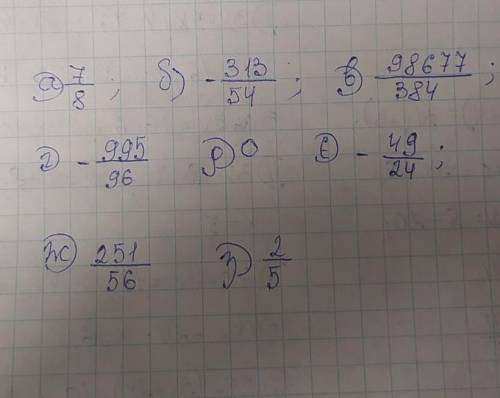 а) 7/8; б) -313/54; в) 98677/384;
г) -995/96 д) 0 е) -49/24;
ж) 251/56 з) 2/5